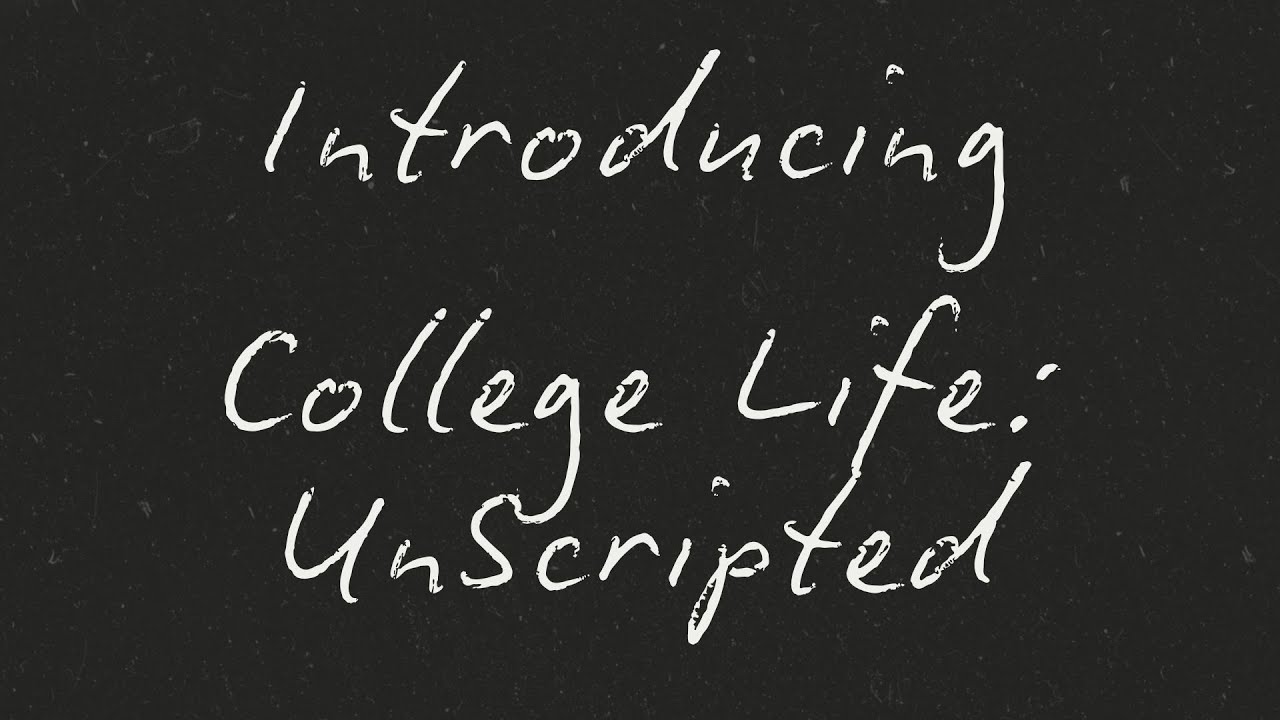 Introducing
College Life:
UnScripted